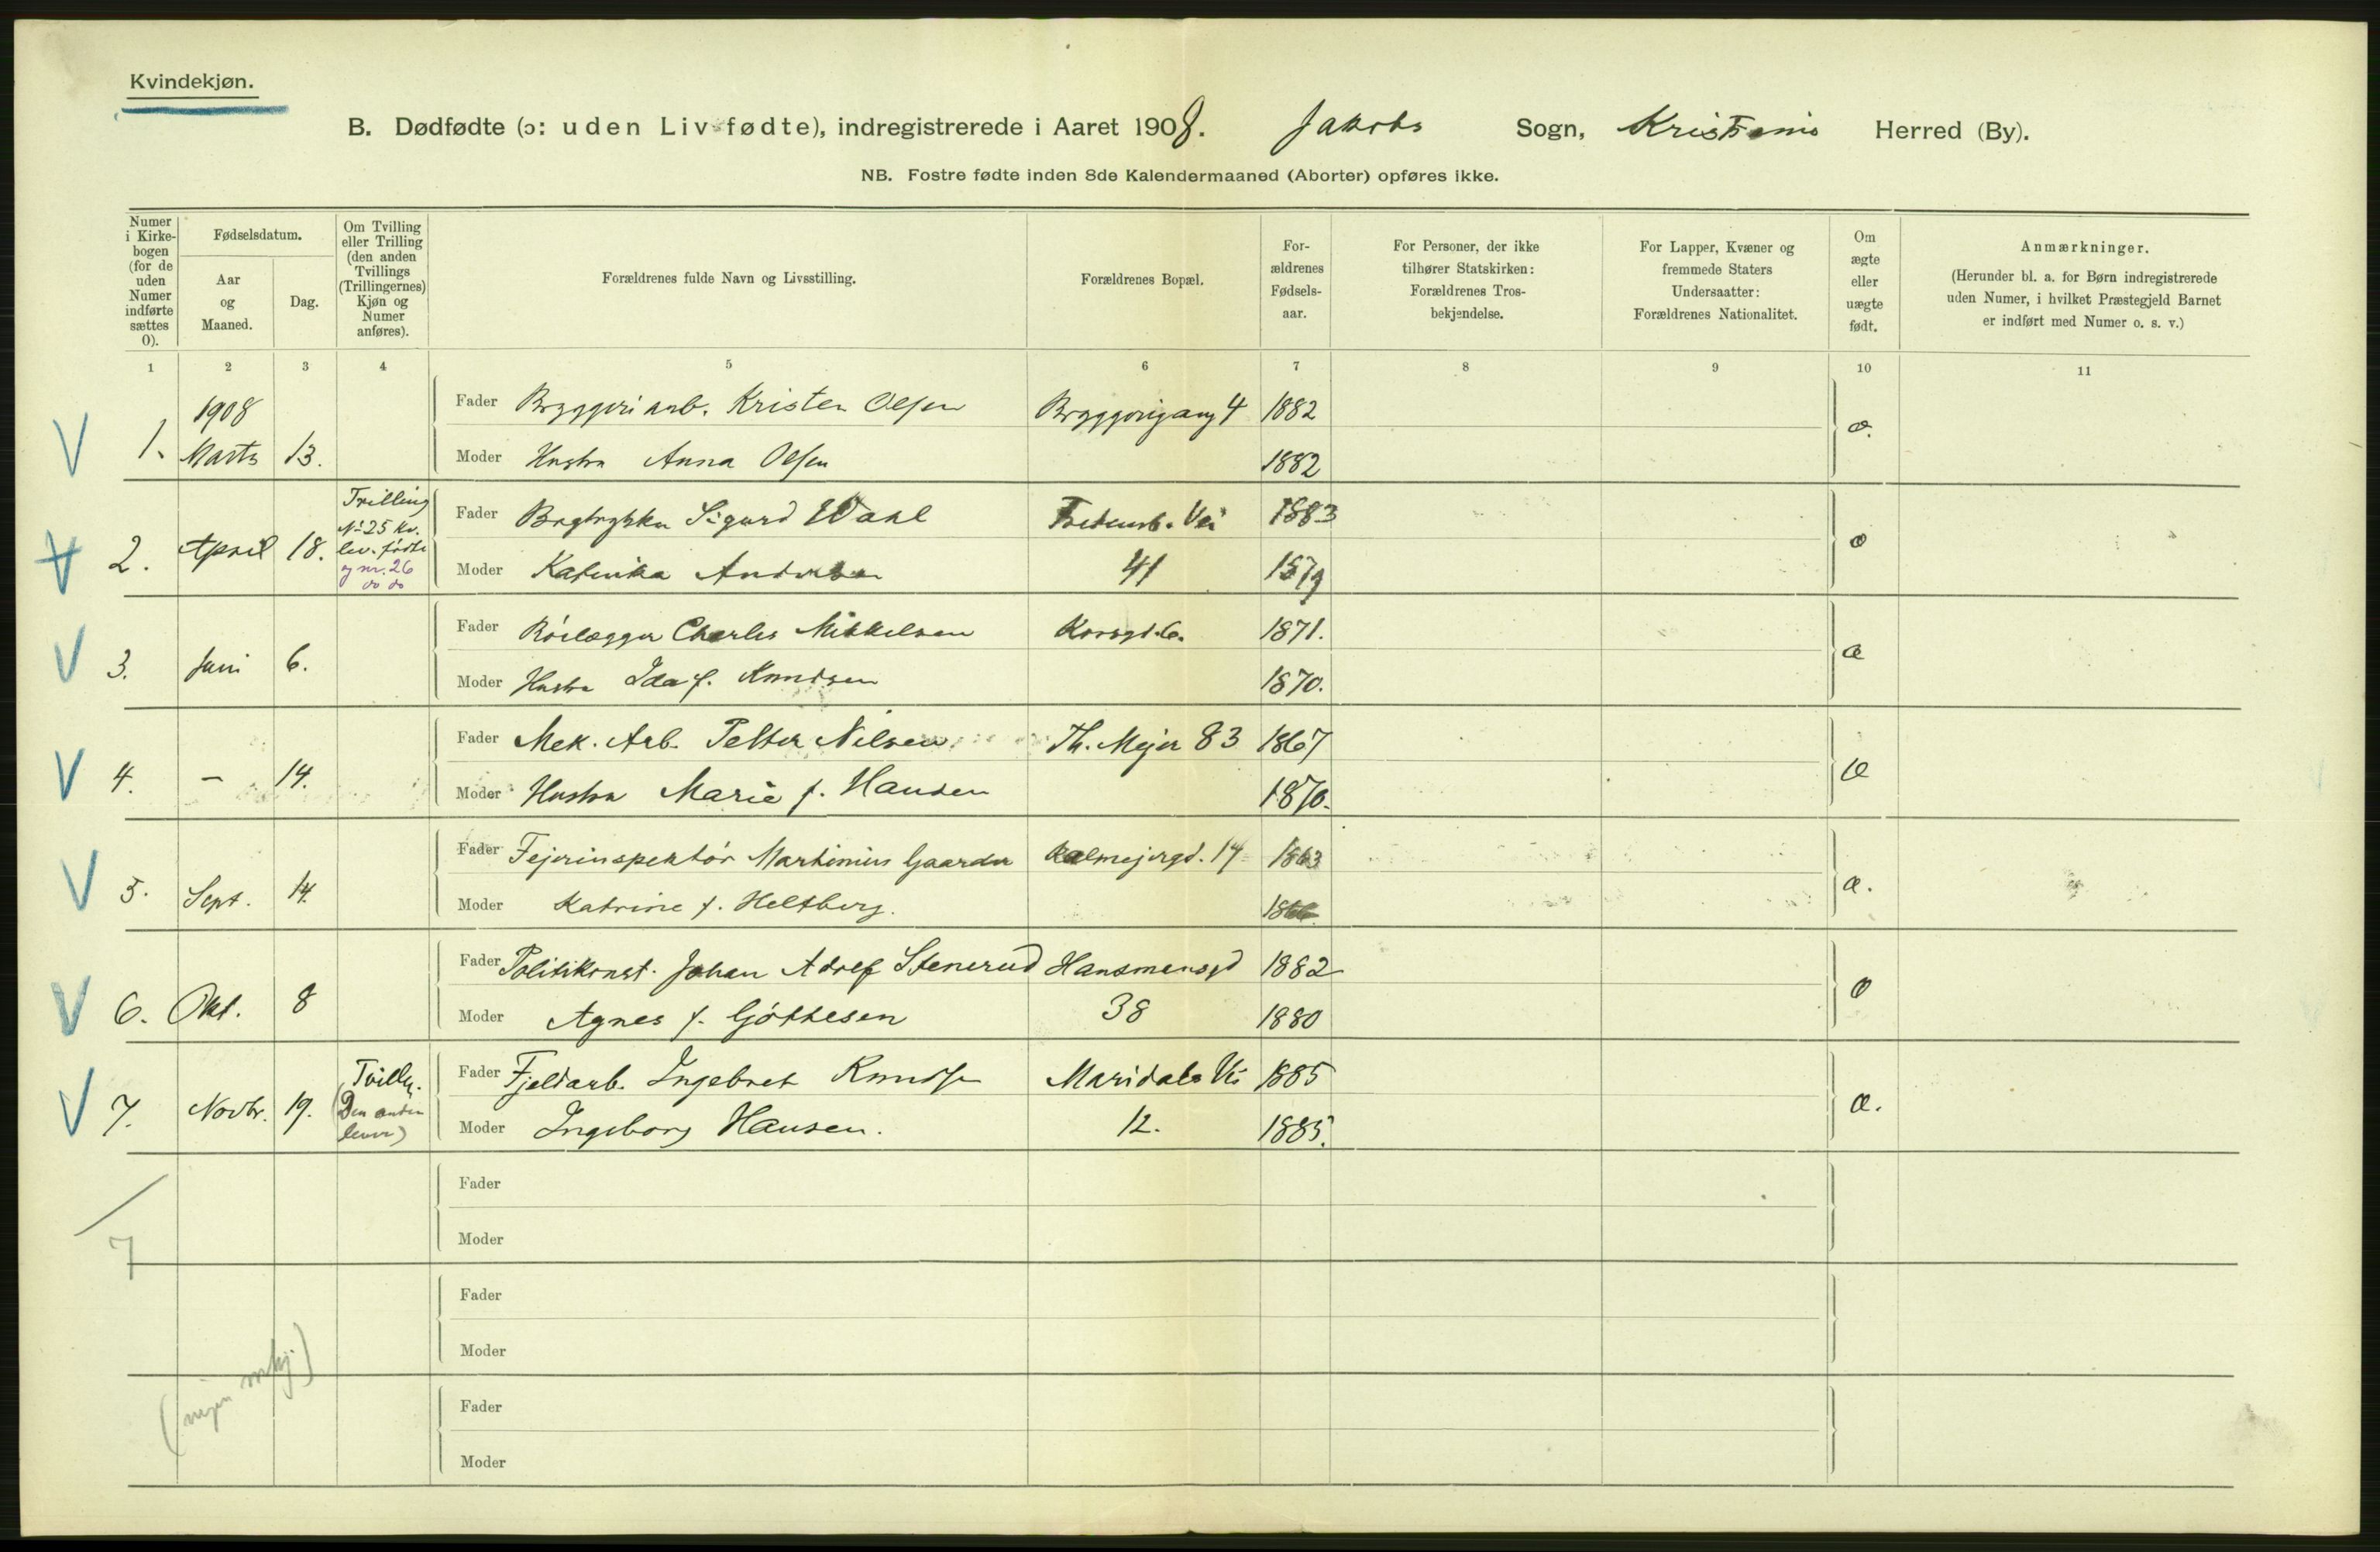 Kvindekjøn.
B. Dødfødte (ɔ: uden Liv fødte), indregistrerede i Aaret 1908. Jakobs Sogn, Kristiania Herred (By).
NB. Fostre fødte inden 8de Kalendermaaned (Aborter) opføres ikke.
Numer i Kirkebogen (for de uden Numer indførte sættes 0).
Fødselsdatum.
Aar og Maaned.
Dag.
Om Tvilling eller Trilling (den anden Tvillings (Trillingernes) Kjøn og Numer anføres).
Forældrenes fulde Navn og Livsstilling.
Forældrenes Bopæl.
For-ældrenes Fødsels-aar.
For Personer, der ikke tilhører Statskirken: Forældrenes Tros-bekjendelse.
For Lapper, Kvæner og fremmede Staters Undersaatter: Forældrenes Nationalitet.
Om ægte eller uægte født.
Anmærkninger.
(Herunder bl. a. for Børn indregistrerede uden Numer, i hvilket Præstegjeld Barnet er indført med Numer o. s. v.)
1 2 3 4 5 6 7 8 9 10 11
1908
Fader Bryggeriarb. Kristen Olsen Bryggerigang 4 1882
1. Marts 13.
Moder Hustru Anna Olsen 1882
Trilling
No 25 kv.
lev. født
og nr. 26
do do
Fader Sigurd Wahl Vei 1883
2. April 18.
Moder Katinka Andersen 41 1879
Fader Rørlægger Charles Mikkelsen Korsgd. 6. 1871.
3. Juni 6. æ
Moder Hustru Ida f. Knudsen 1870.
Fader Mek. Arb. Petter Nilsen Th. Mejer 83 1867
4. — 14. æ
Moder Hustru Marie f. Hansen 1870.
Fader Fejerinspektør Martinius Gaarder Calmejergd. 14 1863
5. Sept. 14. æ.
Moder Katrine f. Heltberg.
Fader Politikonst. Johan Adolf Stenerud Hausmansgd 1882
6. Okt. 8
Moder Agnes f. Gjøttesen 38 1880
Tvilly.
(Den anden
lever)
Fader Fjeldarb. Ingebret Knudsen Maridals Vei 1885
7. Novbr. 19. æ.
Moder Ingeborg Hansen. 12. 1885.
Fader
Moder
7
Fader
Moder
Fader
Moder